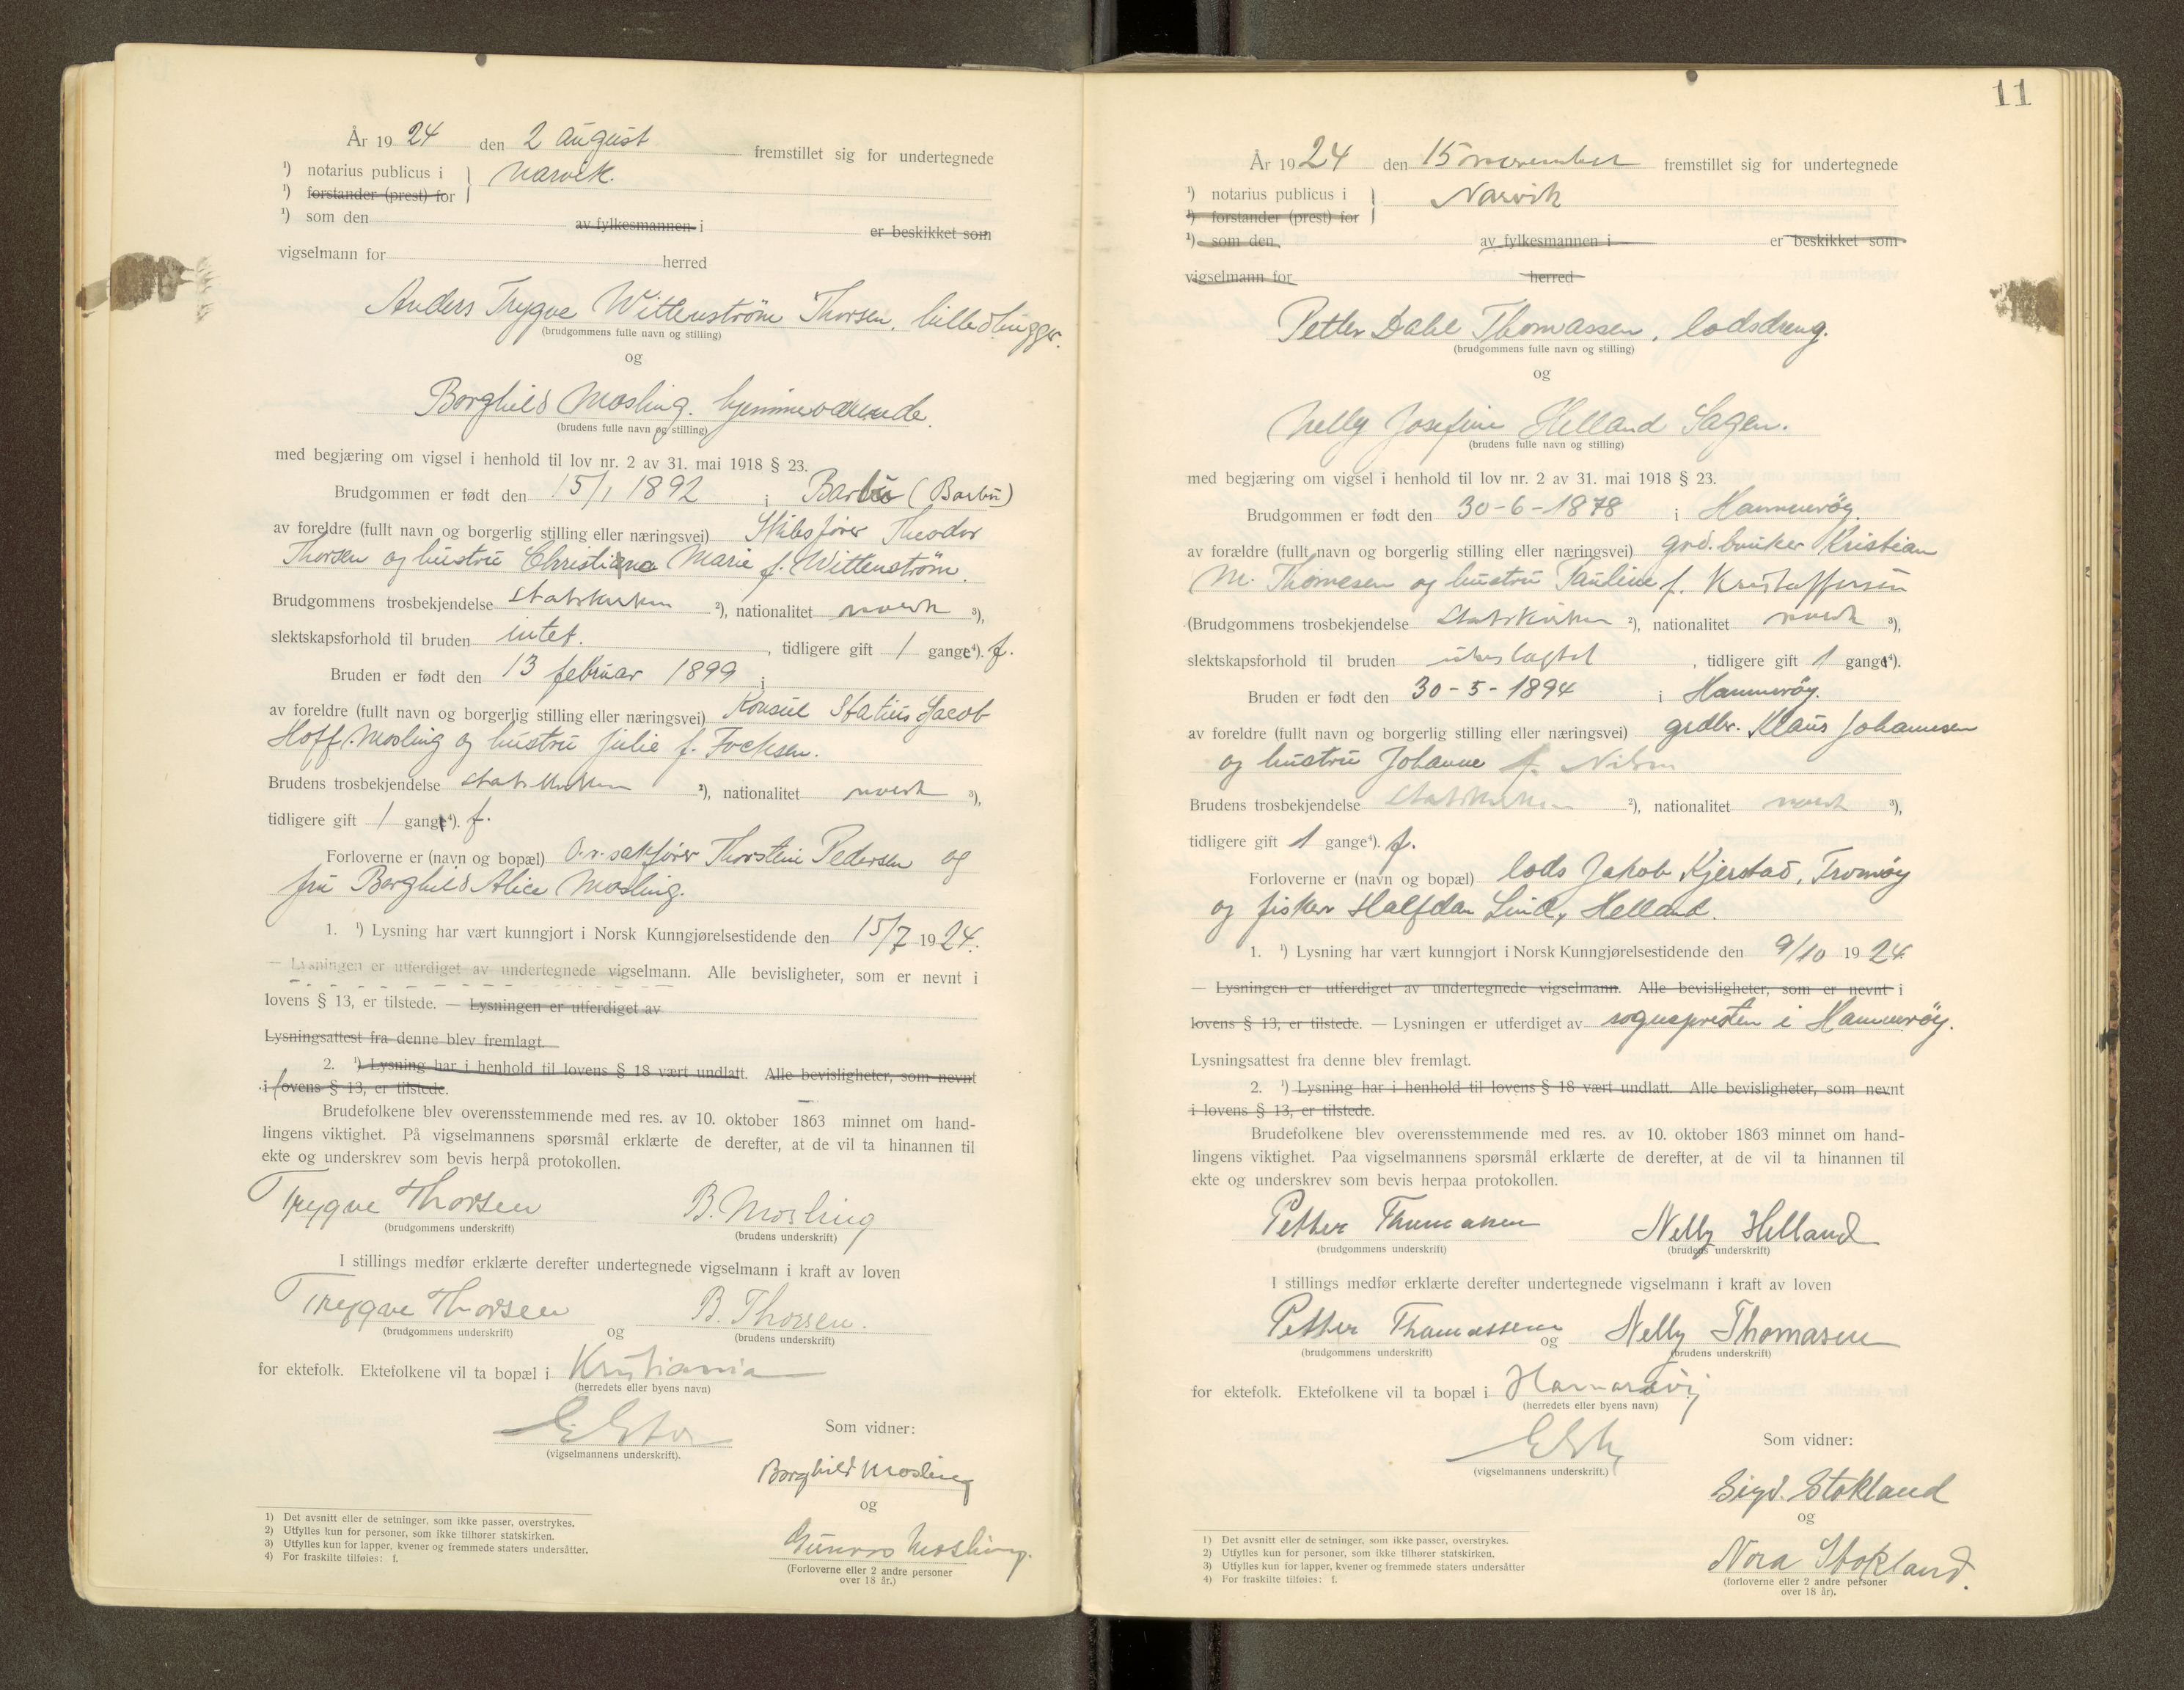 År 1924 den 2 august fremstillet sig for undertegnede
1) notarius publicus i } Narvik.
1) forstander (prest) for
1) som den av fylkesmannen i er beskikket som
vigselmann for herred
Anders Trygve Wittenstrøm Thorsen, billedhugger.
(brudgommens fulle navn og stilling)
og
Borghild Mosling. hjemmeværende.
(brudens fulle navn og stilling)
med begjæring om vigsel i henhold til lov nr. 2 av 31. mai 1918 § 23.
Brudgommen er født den 15/1 1892 i Barbu (Barbu)
av foreldre (fullt navn og borgerlig stilling eller næringsvei) Skibsfører Theodor
Thorsen og hustru Christiane Marie f. Wittenstrøm.
Brudgommens trosbekjendelse statskirken 2), nationalitet norsk 3),
slektskapsforhold til bruden intet. , tidligere gift 1 gange4). f.
Bruden er født den 13 februar 1899 i
av foreldre (fullt navn og borgerlig stilling eller næringsvei) Konsul Statius Jacob
Hoff Mosling og hustru Julie f. Focksen.
Brudens trosbekjendelse statskirken 2), nationalitet norsk 3),
tidligere gift 1 gange4). f.
Forloverne er (navn og bopæl) O.r.sakfører Thorstein Pedersen og
fru Borghild Alice Mosling.
1. 1) Lysning har vært kunngjort i Norsk Kunngjørelsestidende den 15/7 1924.
— Lysningen er utferdiget av undertegnede vigselmann. Alle bevisligheter, som er nevnt i
lovens § 13, er tilstede. — Lysningen er utferdiget av
Lysningsattest fra denne blev fremlagt.
2. 1) Lysning har i henhold til lovens § 18 vært undlatt. Alle bevisligheter, som nevnt
i lovens § 13, er tilstede.
Brudefolkene blev overensstemmende med res. av 10. oktober 1863 minnet om hand-
lingens viktighet. På vigselmannens spørsmål erklærte de derefter, at de vil ta hinannen til
ekte og underskrev som bevis herpå protokollen.
Trygve Thorsen B. Mosling
(brudgommens underskrift) (brudens underskrift)
I stillings medfør erklærte derefter undertegnede vigselmann i kraft av loven
Trygve Thorsen og B. Thorsen.
(brudgommens underskrift) (brudens underskrift)
for ektefolk. Ektefolkene vil ta bopæl i Kristiania
(herredets eller byens navn)
Som vidner:
(vigselmannens underskrift).
Borghild Mosling
og
Mosling.
(Forloverne eller 2 andre personer
over 18 år.)
1) Det avsnitt eller de setninger, som ikke passer, overstrykes.
2) Utfylles kun for personer, som ikke tilhører statskirken.
3) Utfylles kun for lapper, kvener og fremmede staters undersåtter.
4) For fraskilte tilføies: f.
11
År 1924 den 15 november fremstillet sig for undertegnede
1) notarius publicus i } Narvik
1) forstander (prest) for
1) som den av fylkesmannen i er beskikket som
vigselmann for herred
Petter Dahl Thomassen, lodsdreng.
(brudgommens fulle navn og stilling)
og
Nelly Josefine Helland Sagen.
(brudens fulle navn og stilling)
med begjæring om vigsel i henhold til lov nr. 2 av 31. mai 1918 § 23.
Brudgommen er født den 30-6-1878 i Hammerøy.
av forældre (fullt navn og borgerlig stilling eller næringsvei) grd.bruker Kristian
M. Thomesen og hustru Pauline f. Kristoffersen
(Brudgommens trosbekjendelse Statskirken 2), nationalitet norsk 3),
slektskapsforhold til bruden ubeslagtet , tidligere gift 1 gange4).
Bruden er født den 30-5-1894 i Hammerøy.
av foreldre (fullt navn og borgerlig stilling eller næringsvei) grdbr. Klaus Johannesen
og hustru Johanne f. Nilsen
Brudens trosbekjendelse Statskirken 2), nationalitet norsk 3),
tidligere gift 1 gange4). f.
Forloverne er (navn og bopæl) lods Jakob Kjerstad, Tromøy
og fisker Halfdan Lind, Helland.
1. 1) Lysning har vært kunngjort i Norsk Kunngjørelsestidende den 9/10 1924
— Lysningen er utferdiget av undertegnede vigselmann. Alle bevisligheter, som er nevnt i
lovens § 13, er tilstede. — Lysningen er utferdiget av sognepresten i Hammerøy.
Lysningsattest fra denne blev fremlagt.
2. 1) Lysning har i henhold til lovens § 18 vært undlatt. Alle bevisligheter, som nevnt
i lovens § 13, er tilstede.
Brudefolkene blev overensstemmende med res. av 10. oktober 1863 minnet om hand-
lingens viktighet. Paa vigselmannens spørsmål erklærte de derefter, at de vil ta hinannen til
ekte og underskrev som bevis herpaa protokollen.
Petter Thomassen Nelly Helland
(brudgommens underskrift) (brudens underskrift)
I stillings medfør erklærte derefter undertegnede vigselmann i kraft av loven
Petter Thomassen og Nelly Thomasen
(brudgommens underskrift) (brudens underskrift)
for ektefolk. Ektefolkene vil ta bopæl i Hamarøy
(herredets eller byens navn)
Som vidner:
(vigselmannens underskrift.)
Sigd. Stokland
og
Nora Stokland.
(forloverne eller 2 andre personer
over 18 år).
1) Det avsnitt eller de setninger, som ikke passer, overstrykes.
2) Utfylles kun for personer, som ikke tilhører statskirken.
3) Utfylles kun for lapper, kvener og fremmede staters undersåtter
4) For fraskilte tilføies: f.